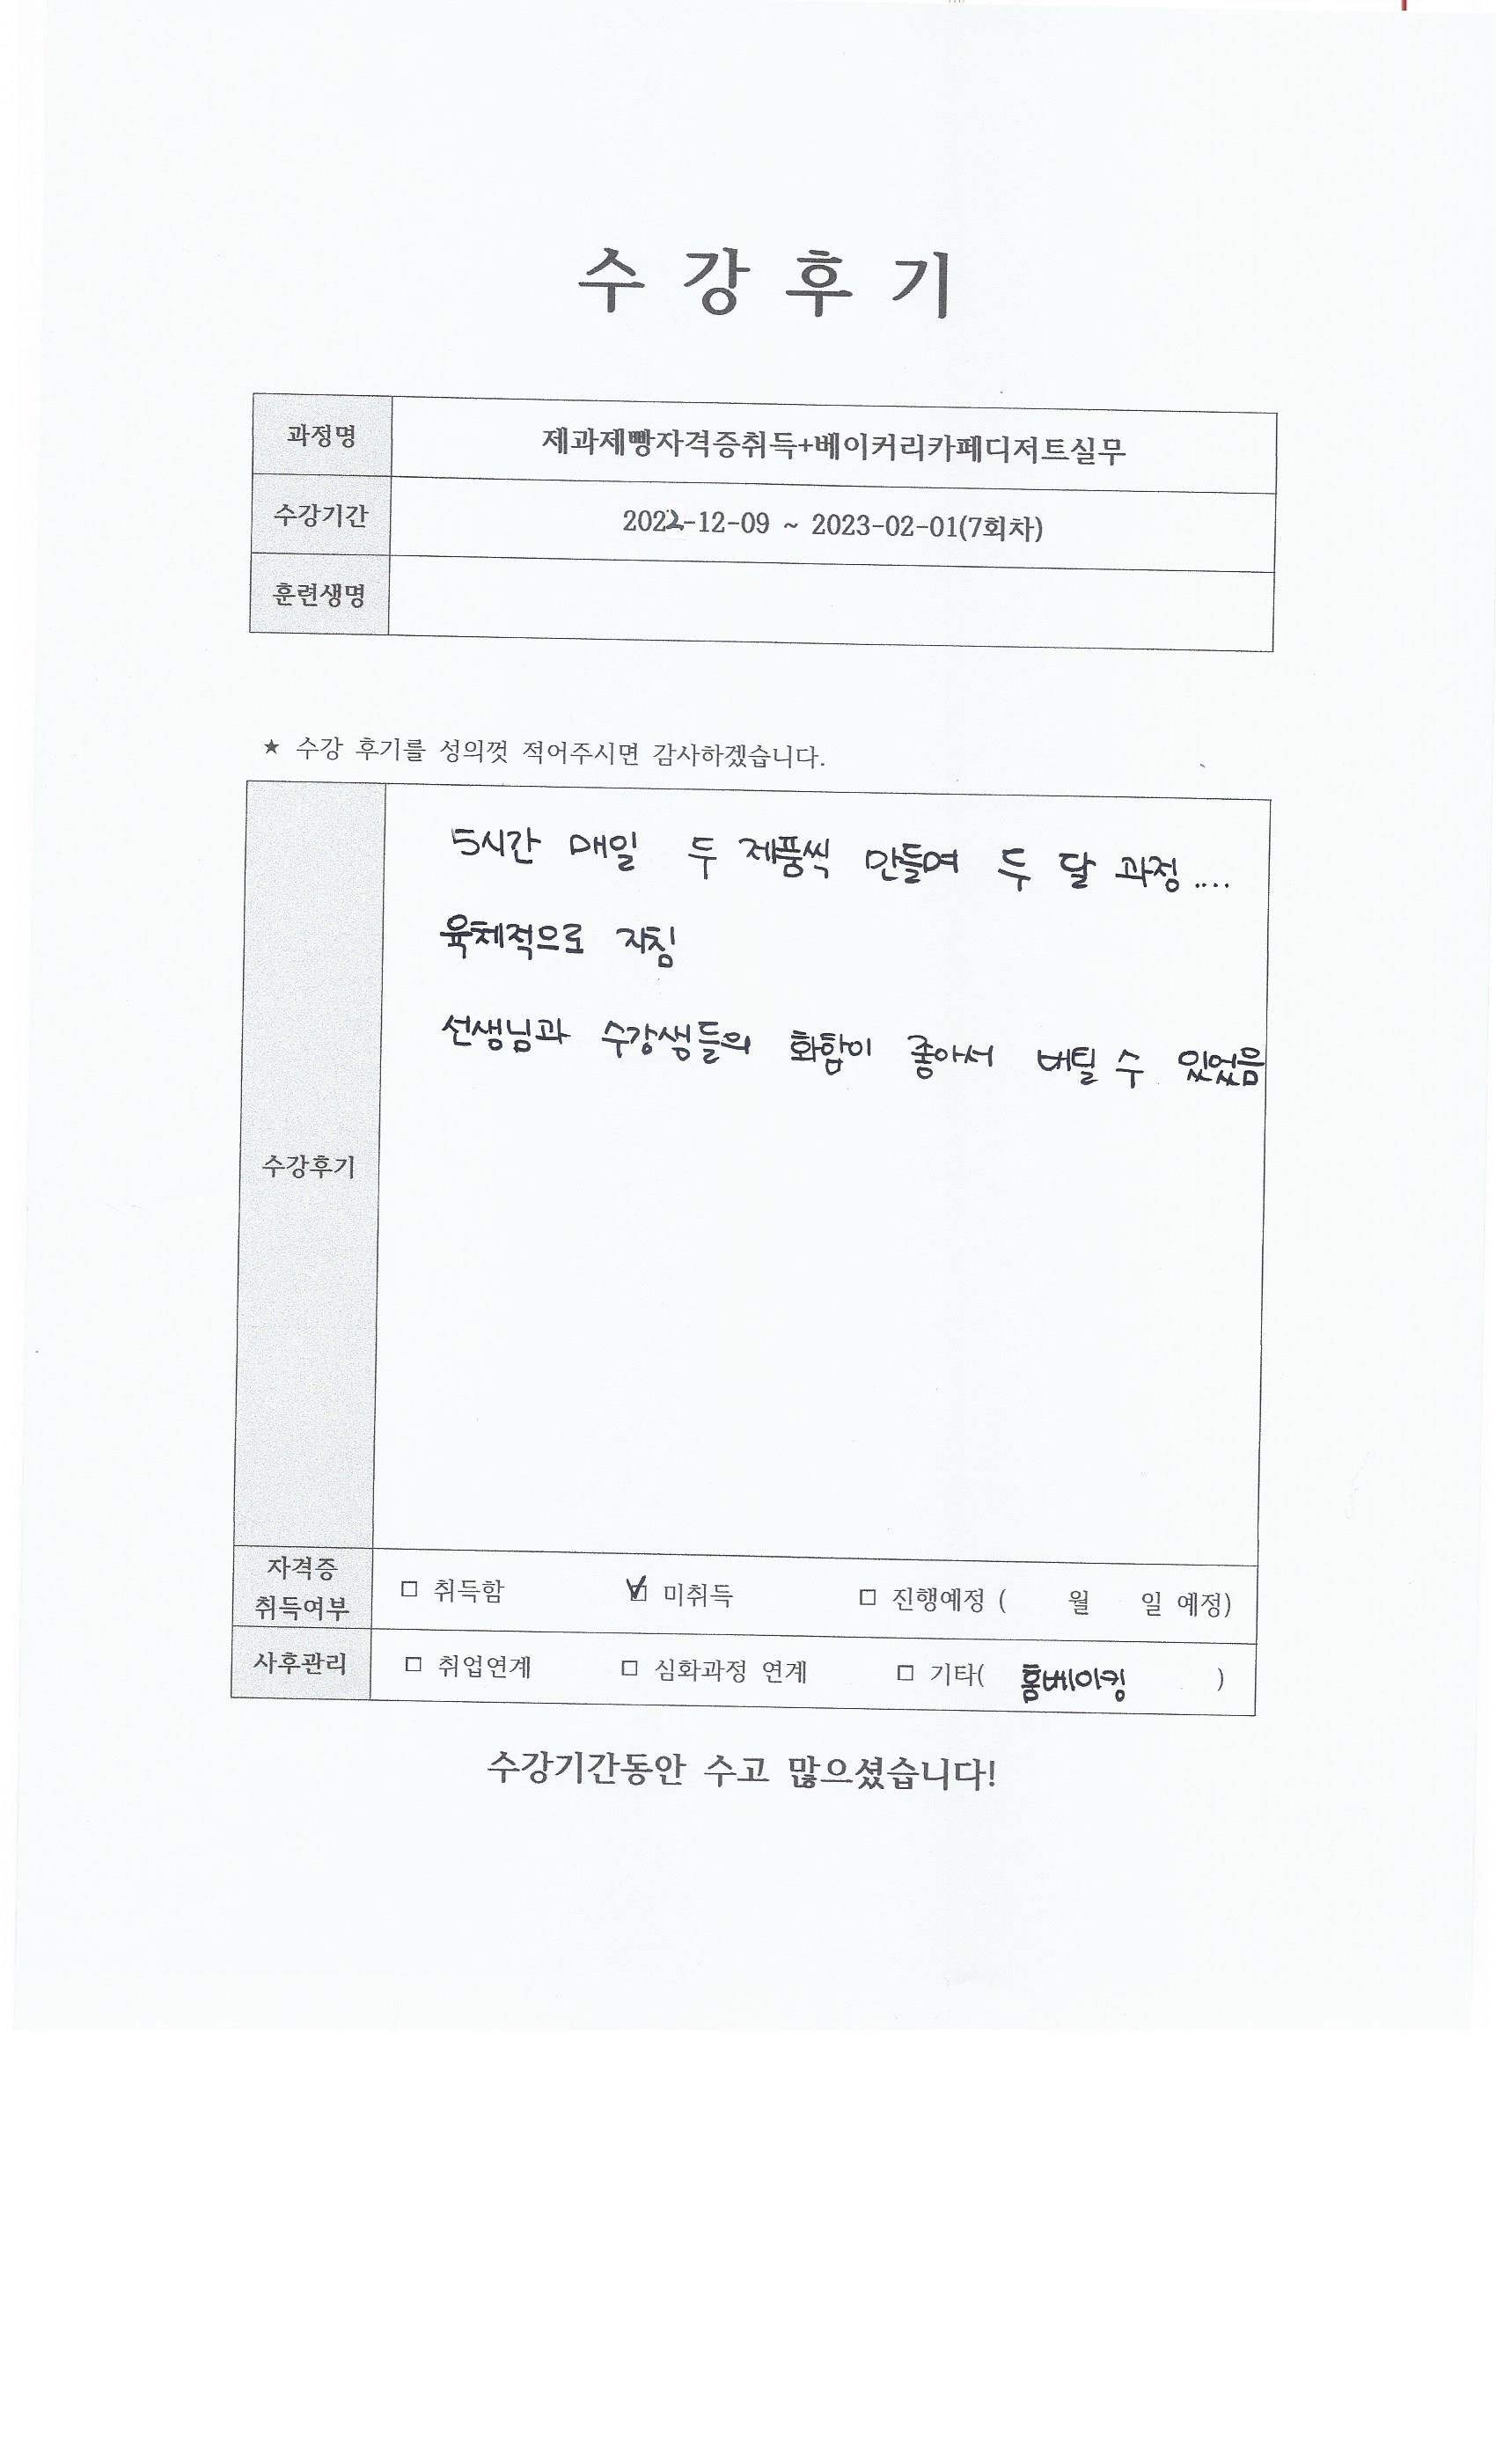 수 강 후 기
과정명 제과제빵자격증취득+베이커리카페디저트실무
수강기간 2022-12-09 ~ 2023-02-01(7회차)
훈련생명
★ 수강 후기를 성의껏 적어주시면 감사하겠습니다.
5시간 매일 두 제품씩 만들며 두 달 과정....
육체적으로 지침
선생님과 수강생들의 화합이 좋아서 버틸 수 있었음
수강후기
자격증
취득여부 □ 취득함 ☑ 미취득 □ 진행예정 ( 월 일 예정)
사후관리 □ 취업연계 □ 심화과정 연계 □ 기타( 홈베이킹 )
수강기간동안 수고 많으셨습니다!